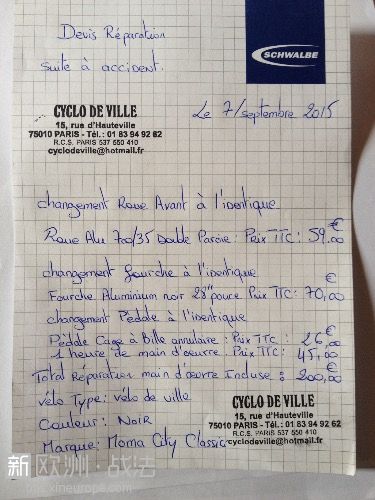 Devis Réparation
suite à accident.
SCHWALBE
CYCLO DE VILLE
15, rue d'Hauteville
75010 PARIS - Tél.: 01 83 94 92 62
R.C.S. PARIS 537 550 410
cyclodeville@hotmail.fr
Le 7/septembre 2015
changement Roue Avant à l'identique
Roue Alu 700/35 Double Paroie: Prix TTC: 59,00€
changement fourche à l'identique
Fourche Aluminium noir 28" pouce Prix TTC: 70,00€
changement Pédale à l'identique
Pédale Cage à Bille annulaire: Prix TTC: 26,00€
1 heure de main d'oeuvre. Prix TTC: 45,00€
Total Réparation main d'oeuvre Incluse: 200,00€
vélo Type: vélo de ville
Couleur: NOIR
Marque: Moma City Classic
CYCLO DE VILLE
15, rue d'Hauteville
75010 PARIS - Tél.: 01 83 94 92 62
R.C.S. PARIS 537 550 410
cyclodeville@hotmail.fr
新欧洲·战法
xineurope.com